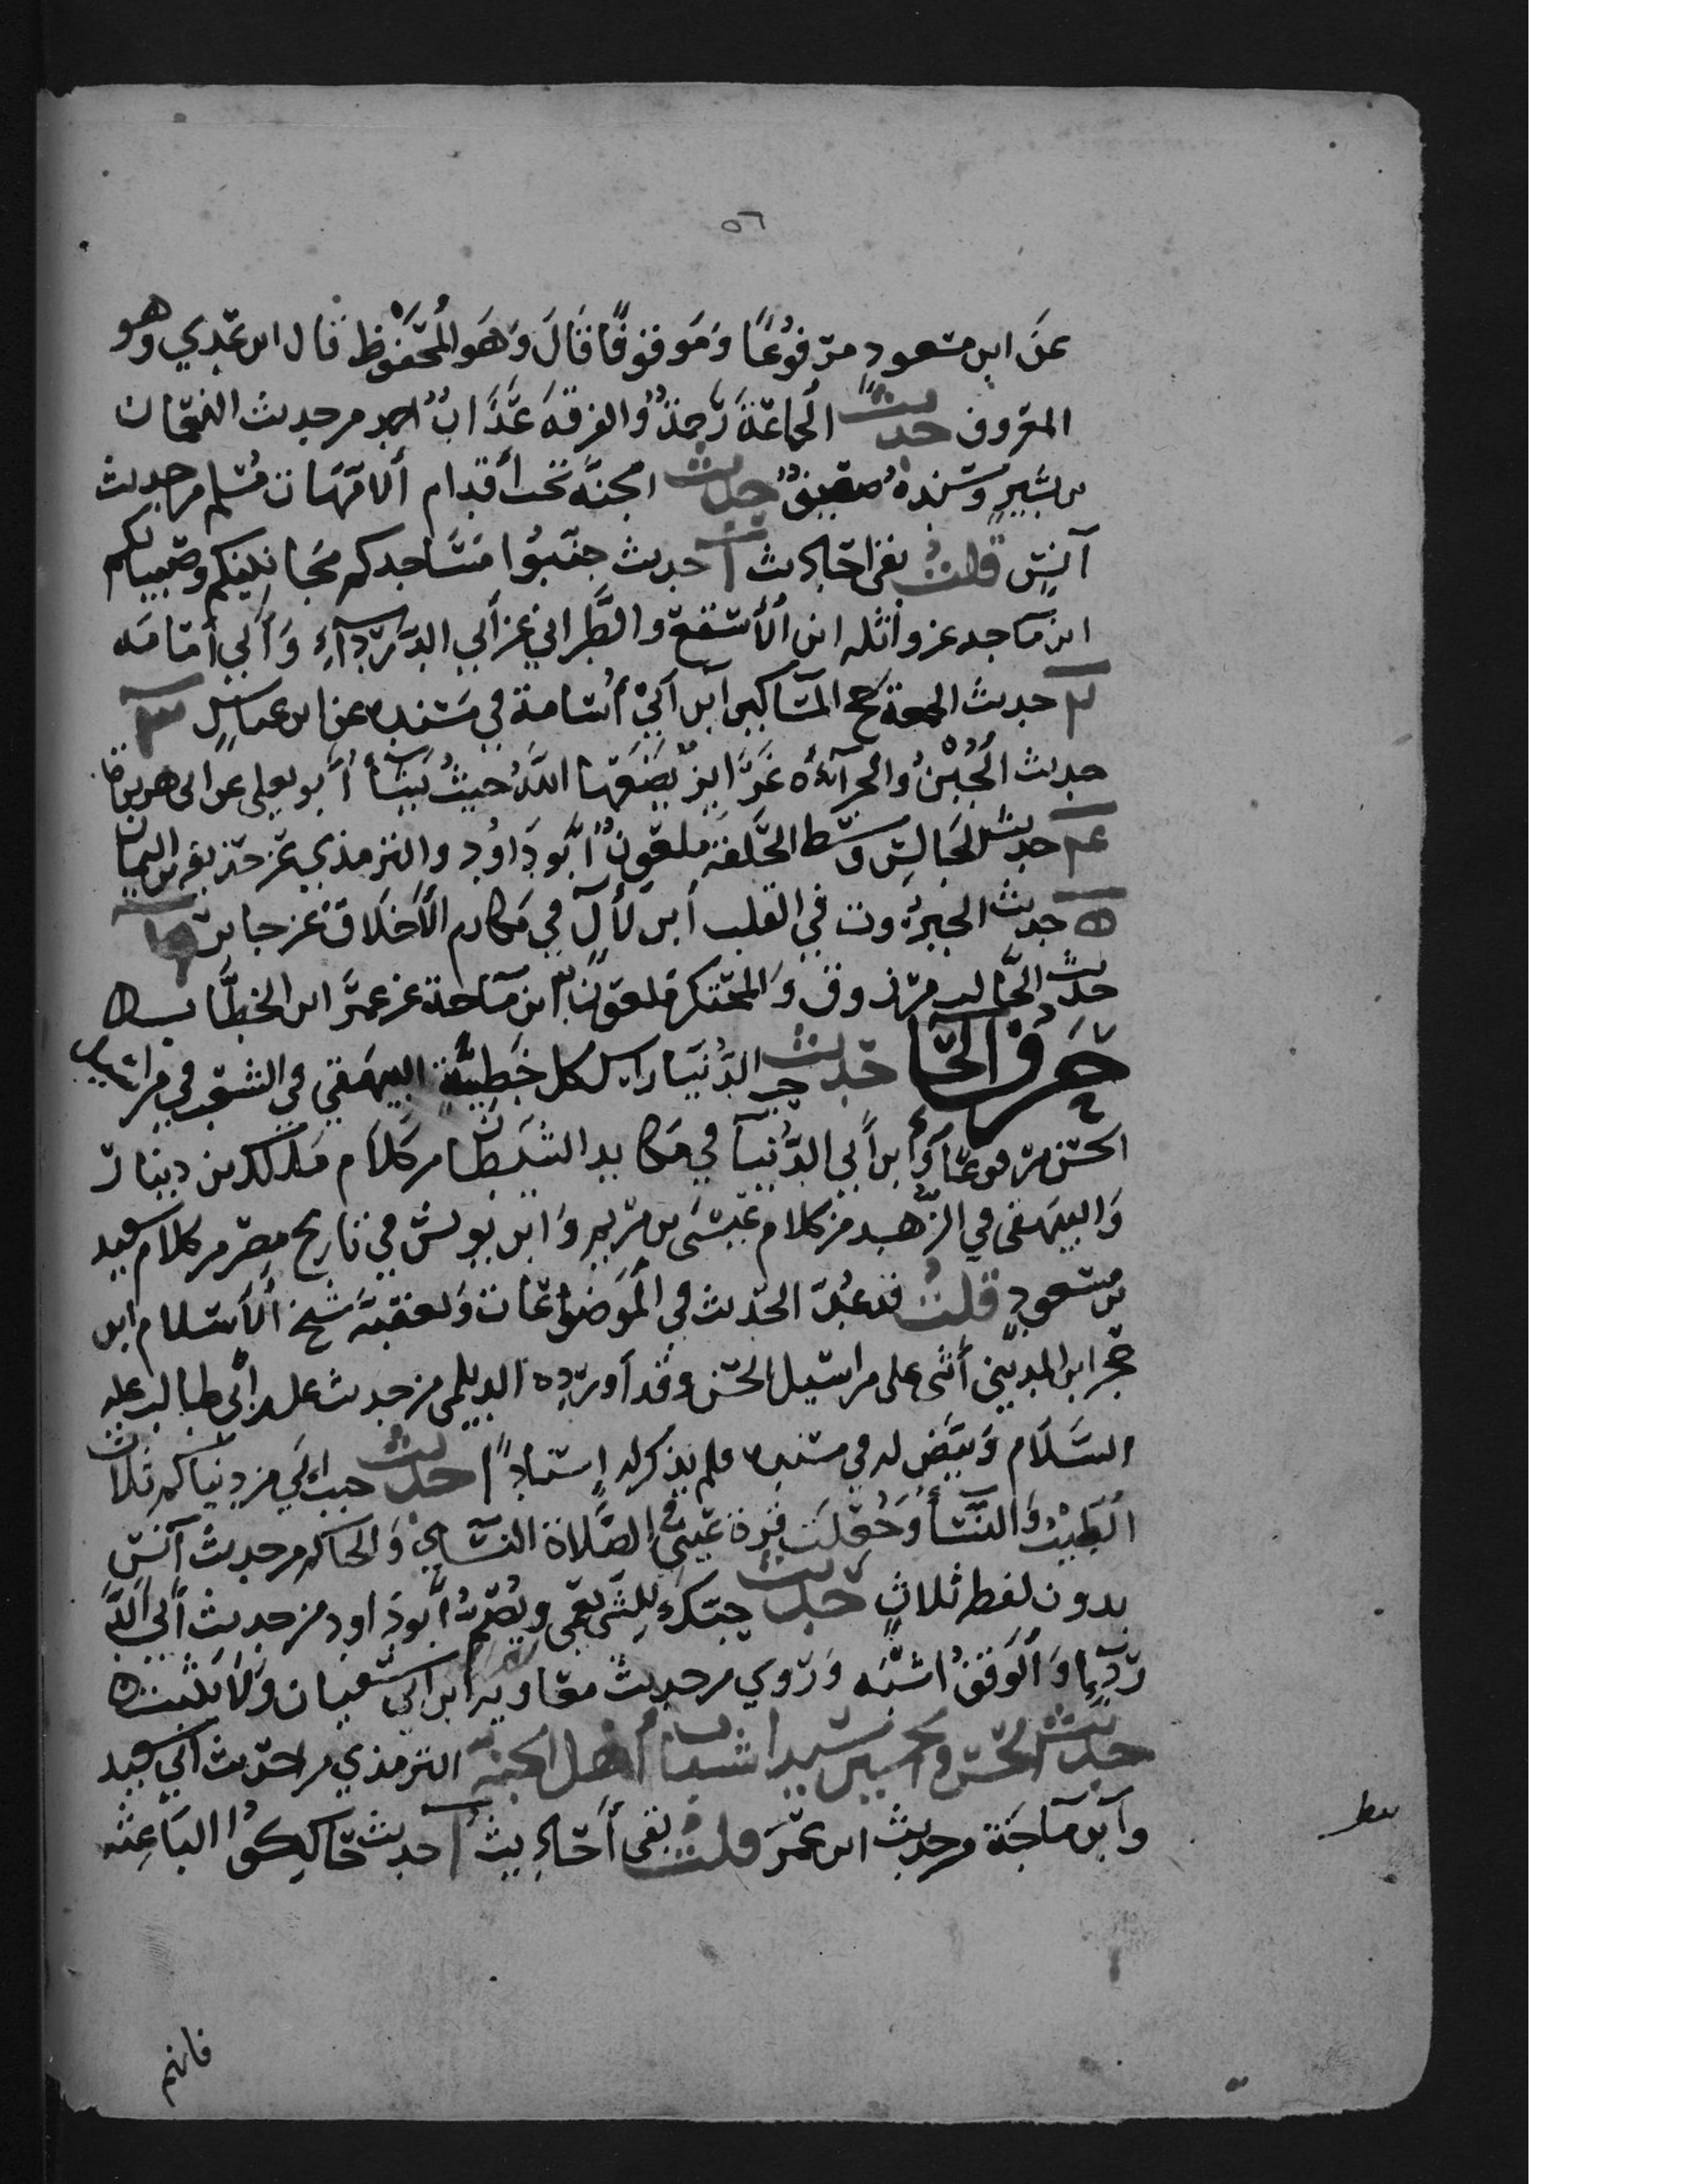 ٥٦
عن ابن مسعود مرفوعًا وموقوفًا قال وهو المحفوظ قال ابن عدي وهو
المعروف حديث الجماعة رحمة والفرقة عذاب احمد من حديث النعمان
بن بشير وسنده ضعيف حديث الجنة تحت أقدام الامهات مسلم من حديث
أنس قلت بقى احاديث ١ حديث جنبوا مساجدكم مجانينكم وصبيانكم
ابن ماجه عن واثله ابن الأسقع والطبراني عن أبي الدرداء وأبي أمامه
٢ حديث الجمعة حج المساكين ابن أبي أسامة في مسنده عن ابن عباس ٣
حديث الجبن والجرأه غرايز يضعها الله حيث يشأ أبو يعلى عن ابي هريرة
٤ حديث الجالس وسط الحلقة ملعون أبو داود والترمذي عن حذيفه بن اليمان
٥ حديث الجبروت في القلب ابن لأل في مكارم الأخلاق عن جابر
حديث الجالب مرزوق والمحتكر ملعون ابن ماجة عن عمر ابن الخطاب
حرف الحا حديث حب الدنيا راس كل خطيئة البيهقي في الشعب في مراسيل
الحسن مرفوعًا وابن أبي الدنيا في مكايد الشيطان من كلام مالك بن دينار
والبيهقي في الزهد من كلام عيسى بن مريم وابن يونس في تاريخ مصر من كلام سعيد
بن مسعود قلت قد عد الحديث في الموضوعات وتعقبه شيخ الأسلام ابن
حجر ابن المديني أثنى على مراسيل الحسن وقد أورده الديلمي من حديث على بن أبي طالب عليه
السلام وبيض له في مسنده ولم يذكر له إسنادًا حديث حبب إلي من دنياكم ثلاث
الطيب والنسأ وجعلت قرة عيني في الصلاة النسائي والحاكم من حديث أنس
بدون لفظ ثلاث حديث حبك للشي يعمي ويصم أبو داود من حديث أبي الد
رداء والوقف اشبه وروي من حديث معاوية ابن ابي سفيان ولا يثبت
حديث الحسن والحسين سيدا شباب أهل الجنة الترمذي من حديث أبي سعيد
وابن ماجة من حديث ابن عمر قلت بقى أحاديث ١ حديث حاكوا الباعثه
فانهم